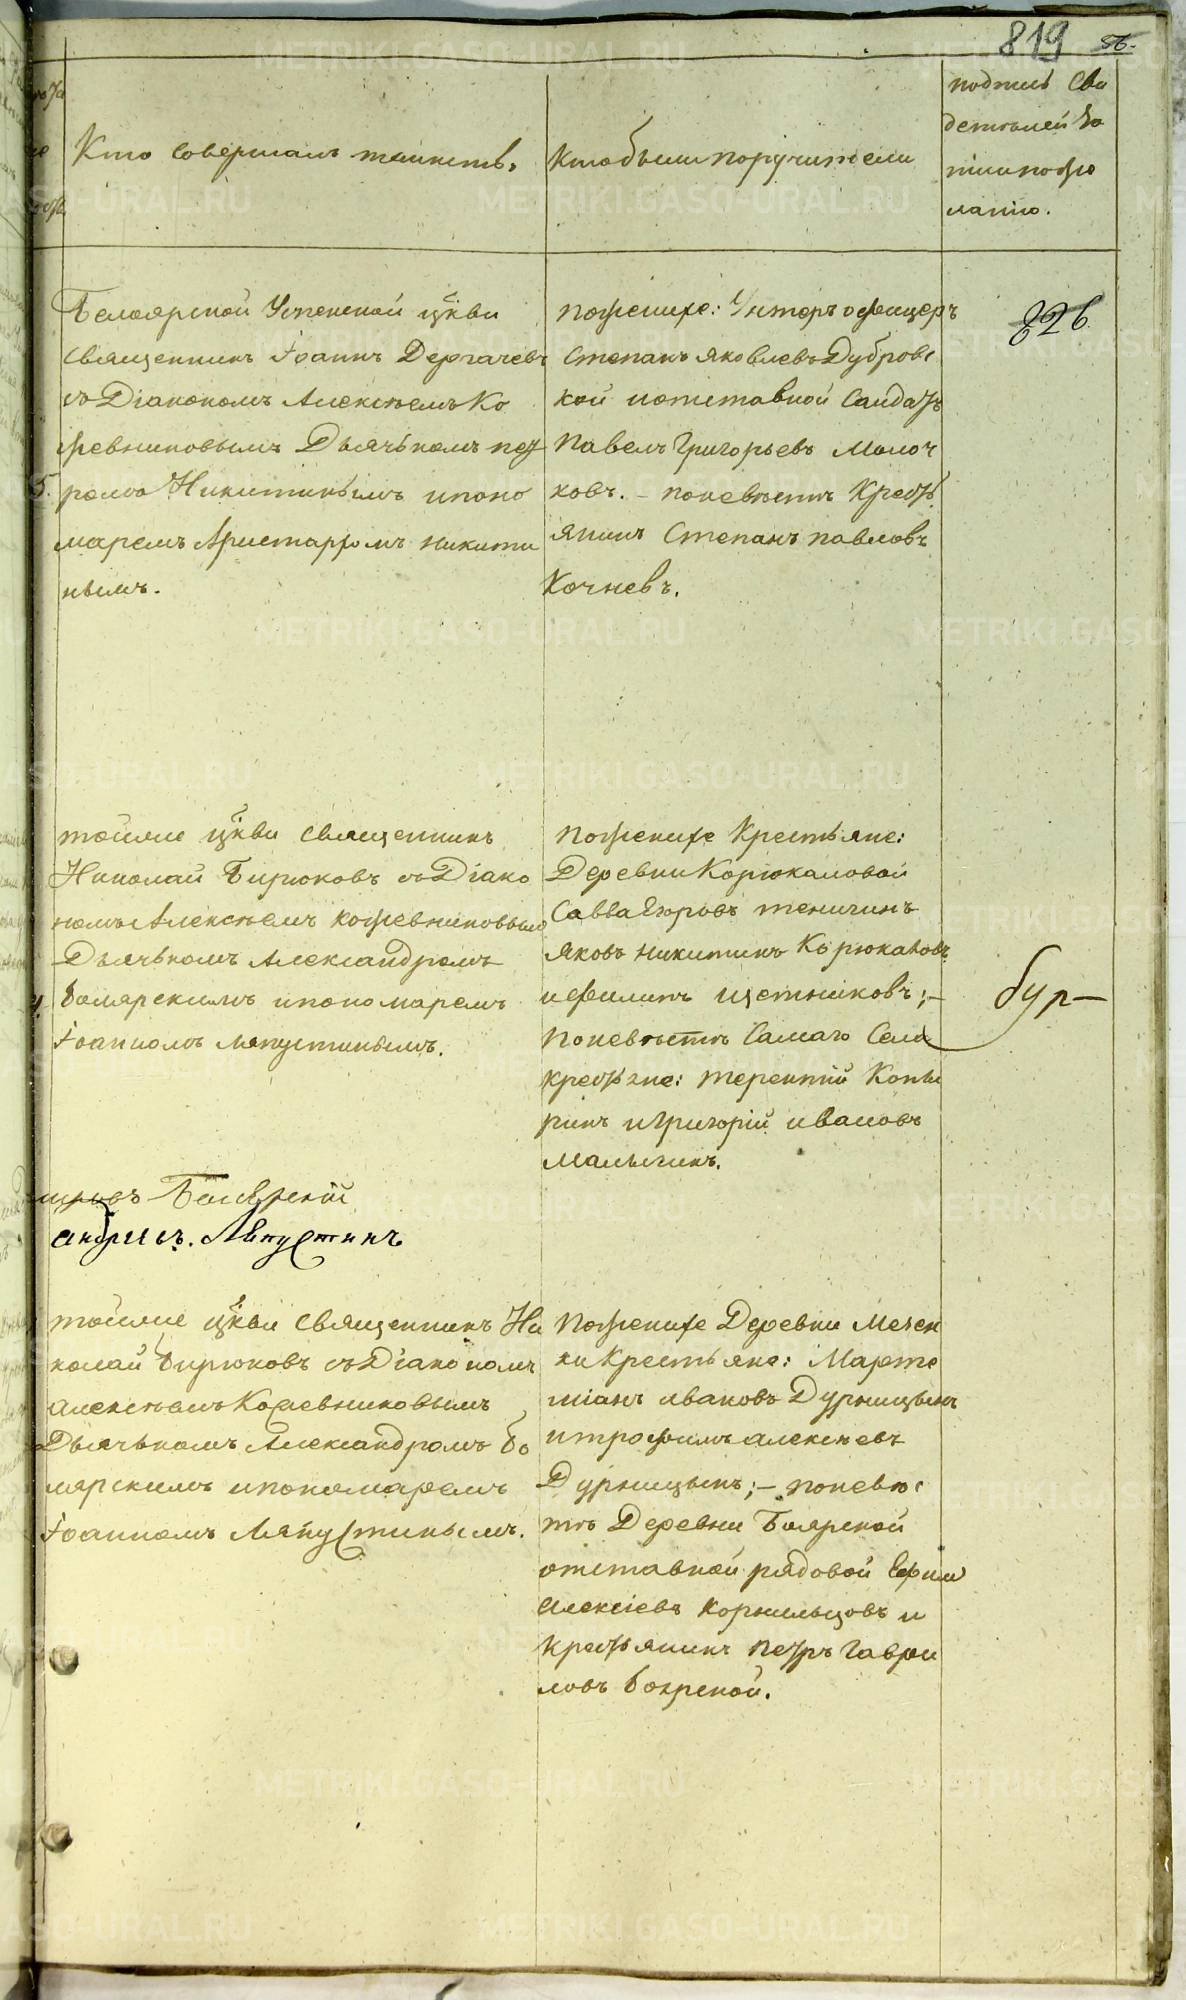 819 56.
Кто совершалъ таинств,
Кто были поручители
подпись Сви
детелей За
писи по же
ланію.
Белоярской Успенской цркви
священникъ Іоаннъ Дергачевъ
съ Діакономъ Алексѣемъ Ко
жевниковымъ Дьячькомъ пет
ромъ Никитинымъ и поно
маремъ Аристархомъ никити
нымъ.
по женихе: Унтеръ офицеръ
Степанъ яковлевъ Дубровс
кой и отставной Салдатъ
Павелъ Григорьевъ Молоч
ковъ. – по невѣстѣ Крестья
янинъ Степанъ павловъ
Кочневъ.
826
тойже цркви священникъ
Николай Бирюковъ съ Діако
номъ Алексѣемъ кожевниковымъ
Дьячькомъ Александромъ
боярскимъ и пономаремъ
Іоанномъ ляпустинымъ.
По женихе Крестьяне:
Деревни Корюкаловой
Савва Егоровъ теничинъ
яковъ никитинъ Корюкаловъ
и филипъ щетниковъ; –
По невѣстѣ Самаго Села
крестьяне: терентій Копы
ринъ и григорій ивановъ
Малыгинъ.
бур–
Боярскій
андреевъ. Ляпустинъ
тойже цркви священникъ Ни
колай бирюковъ съ Діакономъ
алексѣемъ Кожевниковымъ
Дьячькомъ Александромъ бо
ярскимъ и пономаремъ
Іоанномъ Ляпустинымъ.
По женихе Деревни Мезен
ки Крестьяне: Марте
міанъ ивановъ Дурницынъ
и трофимъ алексѣевъ
Дурницынъ; – по невѣс
тѣ Деревни Боярской
отставной рядовой Ефим
Алексіевъ Корнильцовъ и
крестьянинъ петръ гаври
ловъ боярской.